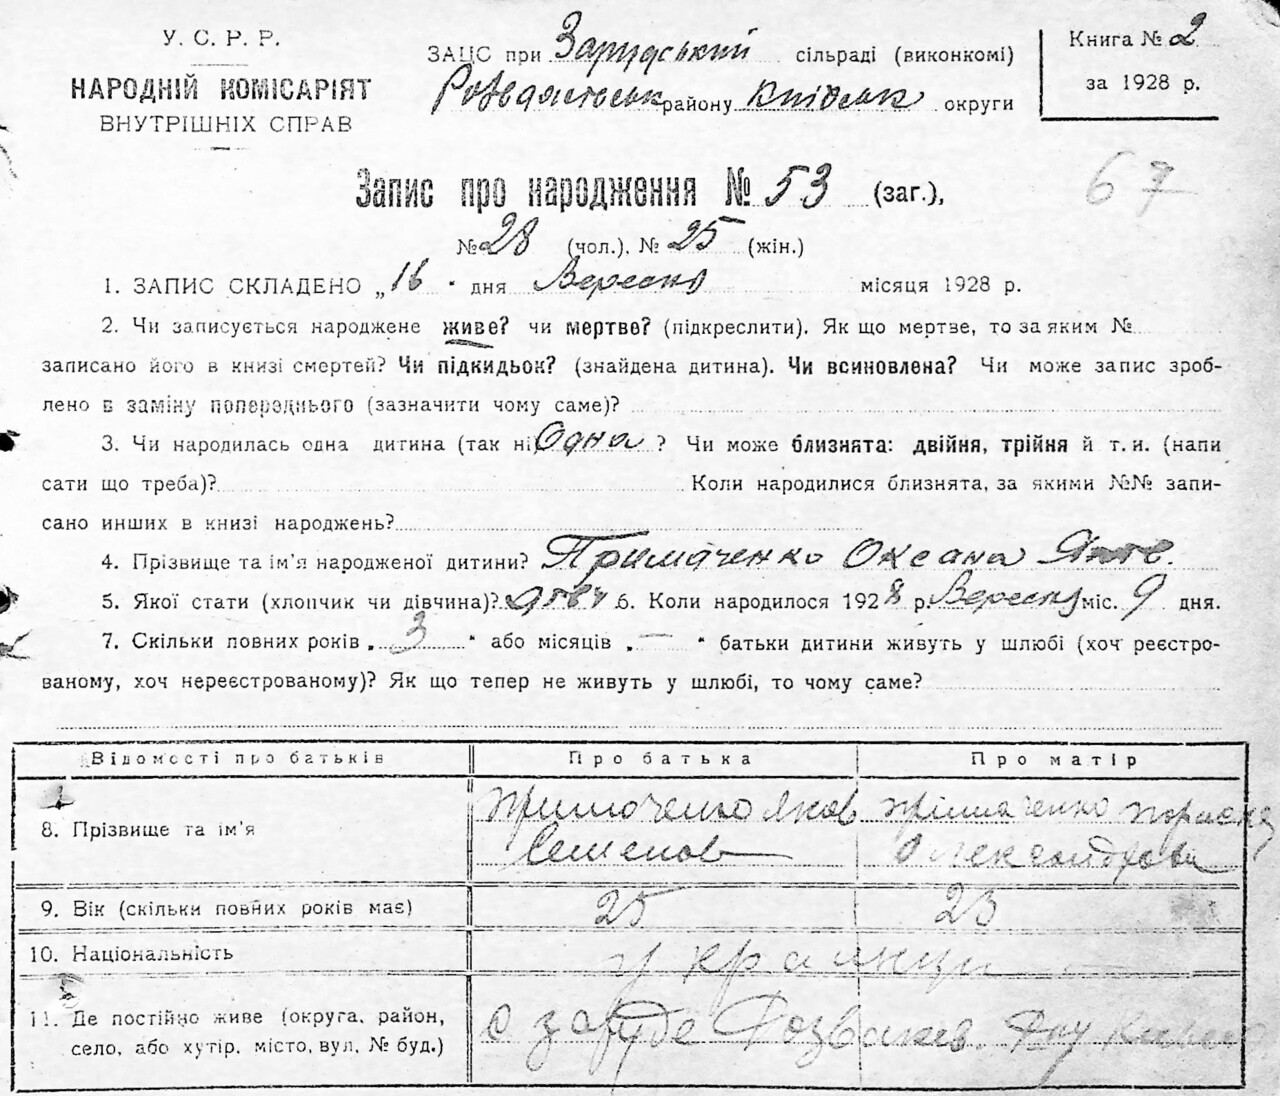 У. С. Р. Р.
НАРОДНІЙ КОМІСАРІЯТ
ВНУТРІШНІХ СПРАВ
ЗАЦС при Зарудський сільраді (виконкомі)
району Київськ округи
Книга № 2
за 1928 р.
67
Запис про народження № 53 (заг.),
№ 28 (чол.). № 25 (жін.)
1. ЗАПИС СКЛАДЕНО „16 " дня Вересня місяця 1928 р.
2. Чи записується народжене живе? чи мертве? (підкреслити). Як що мертве, то за яким №
записано його в книзі смертей? Чи підкидьок? (знайдена дитина). Чи всиновлена? Чи може запис зроб-
лено в заміну попереднього (зазначити чому саме)?
3. Чи народилась одна дитина (так ні) Одна ? Чи може близнята: двійня, трійня й т. и. (напи
сати що треба)? Коли народилися близнята, за якими №№ запи-
сано инших в книзі народжень?
4. Прізвище та ім'я народженої дитини? Примаченко Оксана Яков.
5. Якої стати (хлопчик чи дівчина)? 6. Коли народилося 1928 р. Вересня міс. 9 дня.
7. Скільки повних років „ 3 " або місяців „ — " батьки дитини живуть у шлюбі (хоч реєстро-
ваному, хоч нереєстрованому)? Як що тепер не живуть у шлюбі, то чому саме?
Відомості про батьків Про батька Про матір
8. Прізвище та ім'я Примоченко Яков Прімаченко
Семенов Олександрова
9. Вік (скільки повних років має) 25 23
10. Національність українці
11. Де постійно живе (округа, район,
село, або хутір, місто, вул. № буд.) с Заруде Розважев.